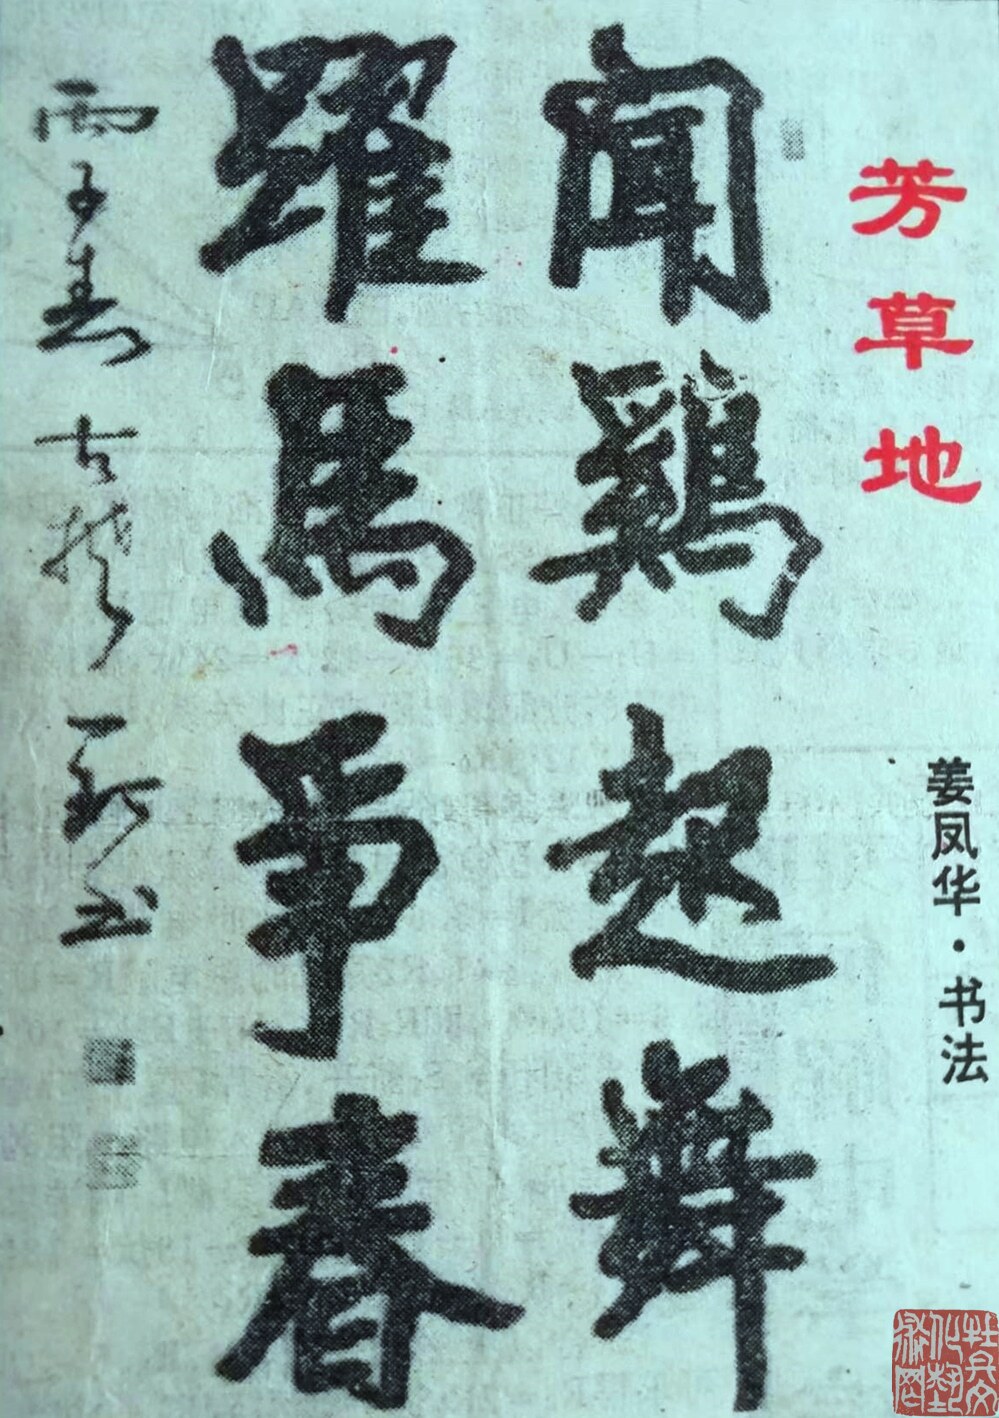 芳草地
姜凤华·书法
聞鷄起舞
躍馬爭春
丙子春 古楚